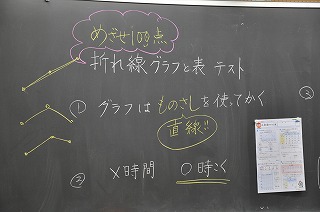 めざせ100点
折れ線グラフと表 テスト
① グラフはものさしを使ってかく
直線!!
② ×時間 ○時こく
③